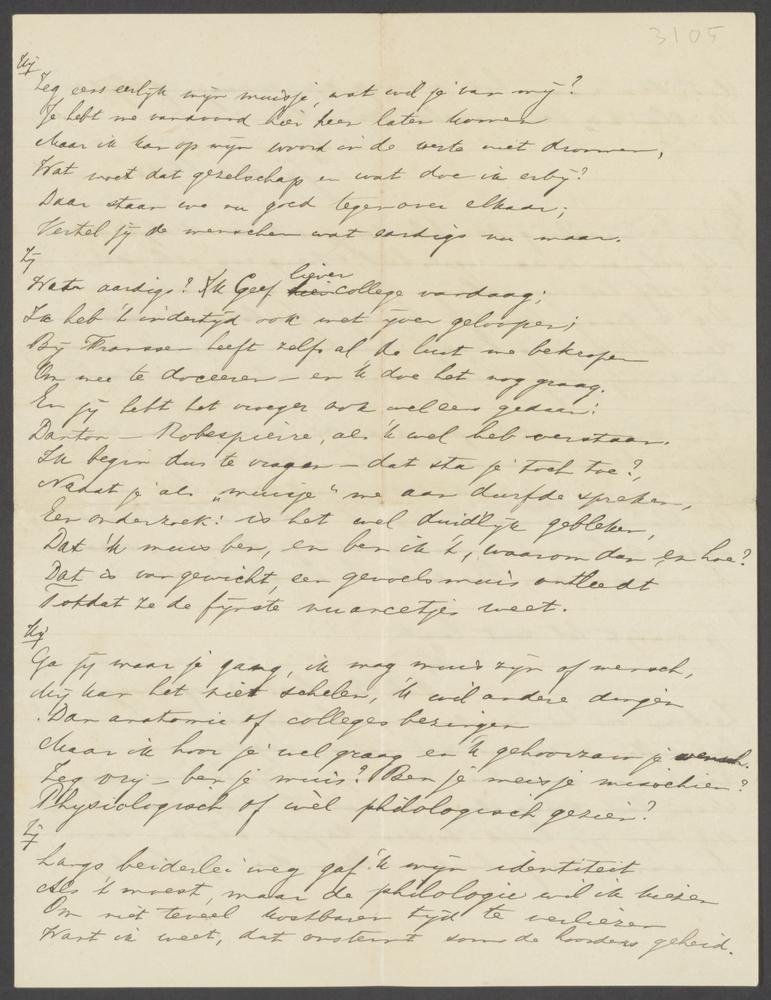 3105
Hij
Zeg eens eerlijk mijn muisje, wat wil je van mij?
Je hebt me vanavond hier heen laten komen
Maar ik kan op mijn woord in de verte niet droomen,
Wat moet dat gezelschap en wat doe ik erbij?
Daar staan we nu goed tegenover elkaar;
Vertel jij de menschen wat aardigs nu maar.
Zij
Wat aardigs? Ik Geef liever college vandaag;
Ik heb 't indertijd ook met ijver geloopen;
Bij Franssen heeft zelfs al de lust me bekropen
Om mee te doceeren – en 'k doe het nog graag.
En jij hebt het vroeger ook wel eens gedaan:
Danton – Robespierre, als 'k wel heb verstaan.
Ik begin dus te vragen – dat sta je toch toe?,
Nadat je als „muisje" me aan durfde spreken,
Een onderzoek: is het wel duid'lijk gebleken,
Dat 'k muis ben, en ben ik 't, waarom dan en hoe?
Dat is van gewicht, een gevoelsmuis ontleedt
Totdat ze de fijnste nuancetjes weet.
Hij
Ga jij maar je gang, ik mag muis zijn of mensch,
Mij kan het niet schelen, 'k wil andere dingen
Dan anatomie of colleges bezingen
Maar ik hoor je wel graag en 'k gehoorzaam je wensch.
Zeg vrij – ben je muis? Ben je meisje misschien?
Physiologisch of wèl philologisch gezien?
Zij
Langs beiderlei weg gaf 'k mijn identiteit
Als 't moest, maar de philologie wil ik kiezen
Om niet teveel kostbaren tijd te verliezen
Want ik weet, dat ontstemt soms de hoorders geheid.